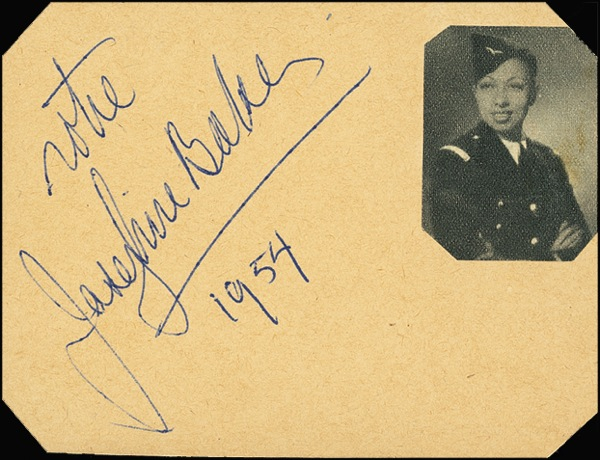 votre
Josephine Baker
1954